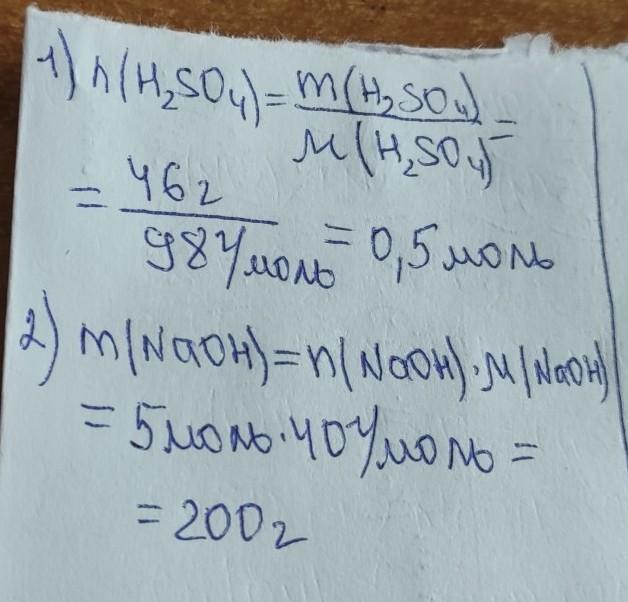 1) n(H₂SO₄) = m(H₂SO₄) / M(H₂SO₄) =
= 46г / 98г/моль = 0,5 моль
2) m(NaOH) = n(NaOH)·M(NaOH)
= 5 моль · 40 г/моль =
= 200г